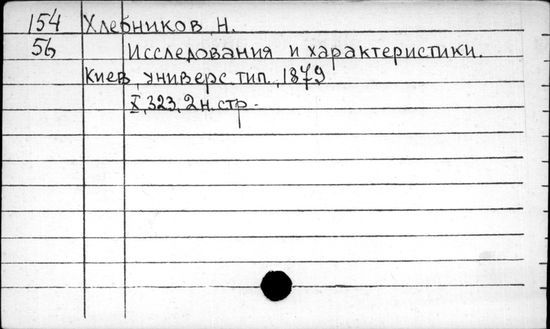 154 Хлебников Н.
56 Исследования и характеристики.
Киев, универс. тип., 1879
X, 323, 2 н. стр.